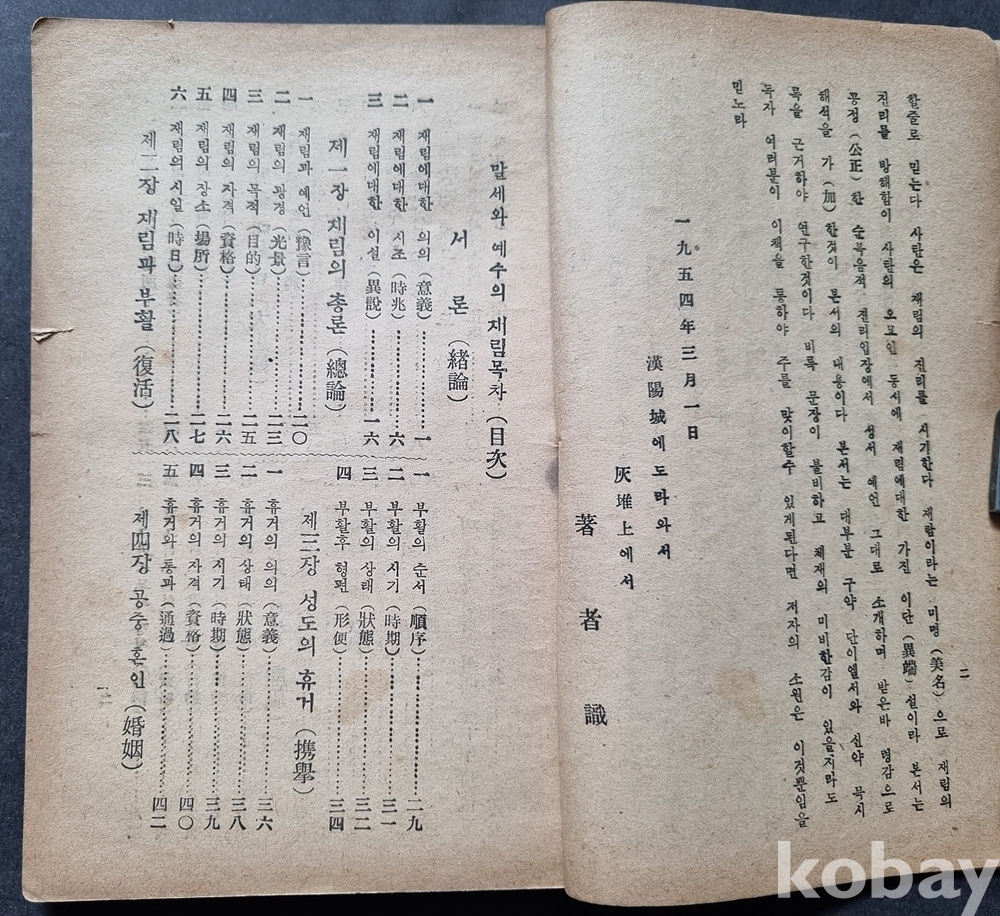 二
할줄로 믿는다 사탄은 재림의 진리를 시기한다 재람이라는 미명(美名)으로 재림의
진리를 방해함이 사탄의 오묘인 동시에 재림에대한 가진 이단(異端)설이라 본서는
공정(公正)한 순복음적 진리입장에서 성서 예언 그대로 소개하며 받은바 령감으로
해석을 가(加)한것이 본서의 내용이다 본서는 대부분 구약 단이엘서와 신약 묵시
록을 근거하야 연구한것이다 비록 문장이 불비하고 체재의 미비한감이 있을지라도
독자 여러분이 이책을 통하야 주를 맞이할수 있게된다면 저자의 소원은 이것뿐임을
믿노라
一九五四年三月一日
漢陽城에도라와서
灰堆上에서
著者識
말세와 예수의 재림목차(目次)
서론(緖論)
一 재림에대한 의의(意義)…………一
二 재림에대한 시조(時兆)…………六
三 재림에대한 이설(異說)…………一六
제一장 재림의 총론(總論)
一 재림과 예언(豫言)…………二〇
二 재림의 광경(光景)…………二三
三 재림의 목적(目的)…………二五
四 재림의 자격(資格)…………二六
五 재림의 장소(場所)…………二七
六 재림의 시일(時日)…………二八
제二장 재림과 부활(復活)
一 부활의 순서(順序)…………二九
二 부활의 시기(時期)…………三一
三 부활의 상태(狀態)…………三二
四 부활후 형편(形便)…………三四
제三장 성도의 휴거(携擧)
一 휴거의 의의(意義)…………三六
二 휴거의 상태(狀態)…………三八
三 휴거의 시기(時期)…………三九
四 휴거의 자격(資格)…………四〇
五 휴거와 통과(通過)…………四二
제四장 공중혼인(婚姻)
kobay